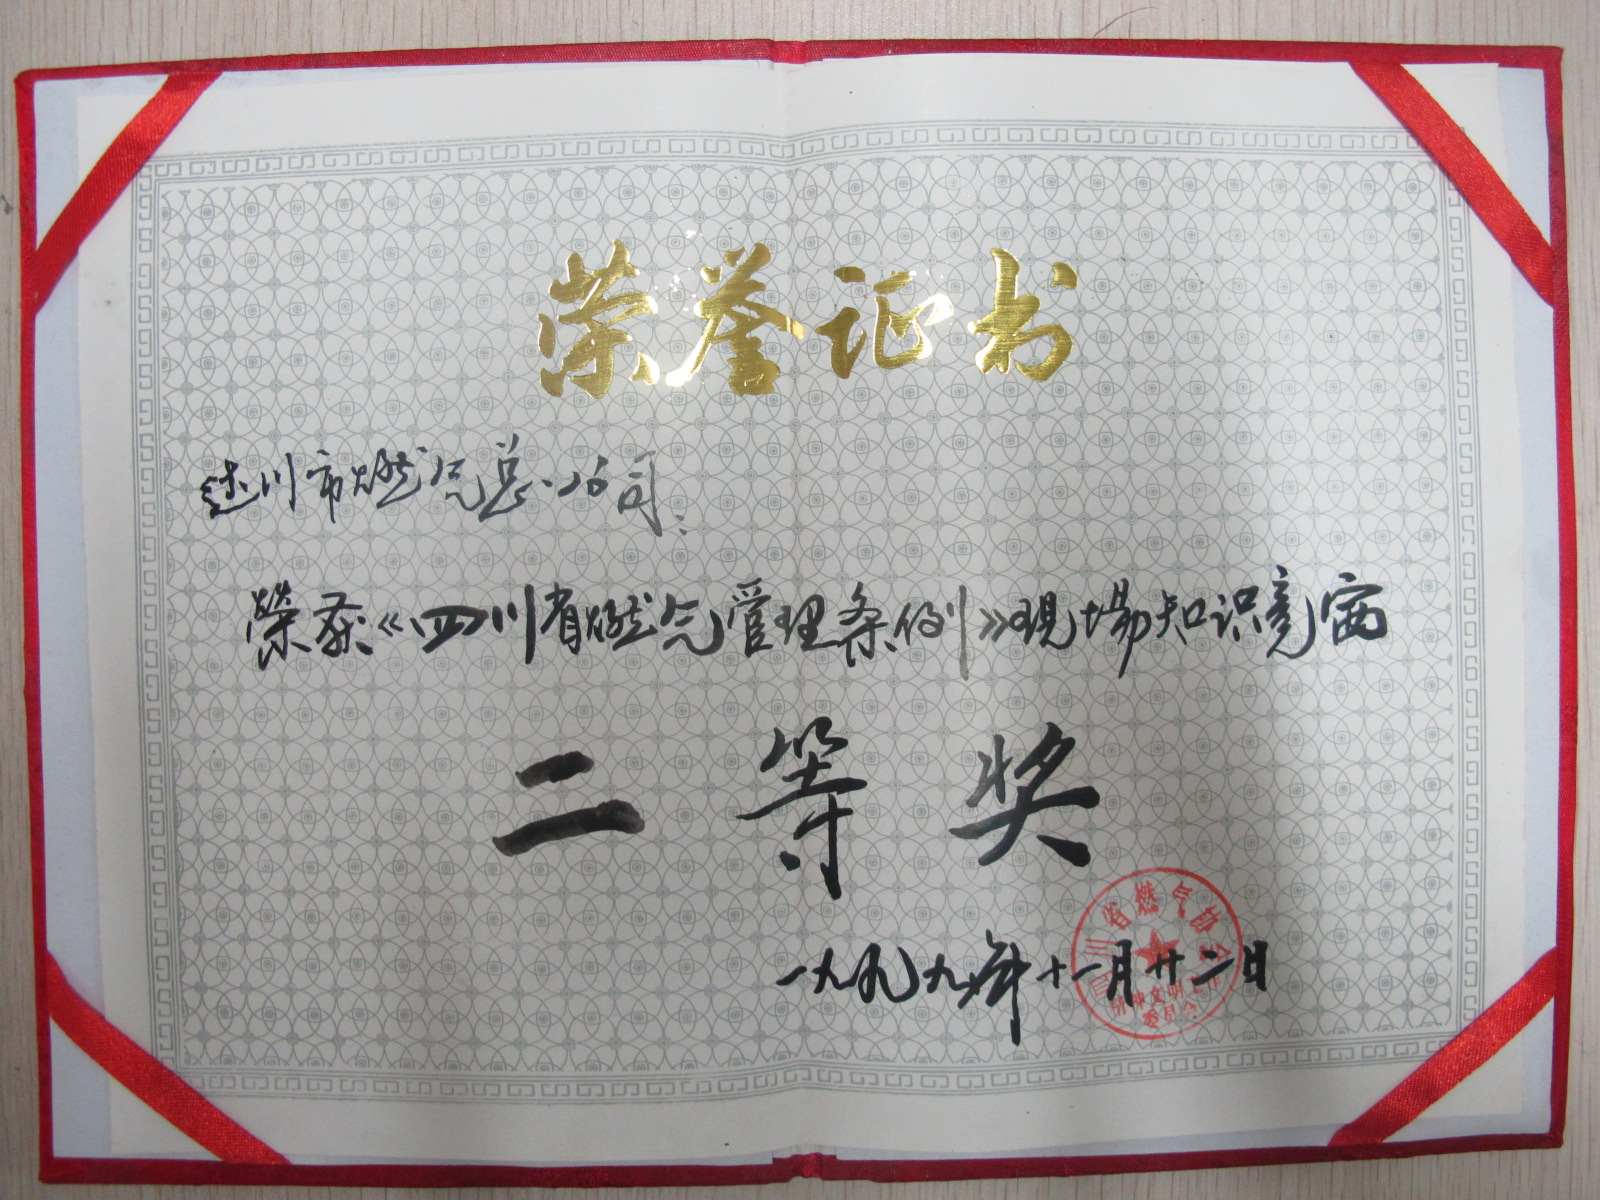 荣誉证书
达川市燃气总公司：
榮获《四川省燃气管理条例》现场知识竞赛
二等奖
一九九九年十一月廿二日
四川省燃气协会
精神文明工作
委员会